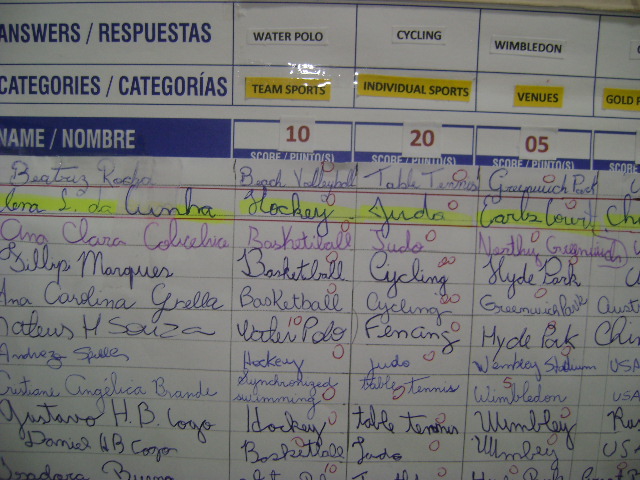 ANSWERS / RESPUESTAS WATER POLO CYCLING WIMBLEDON
CATEGORIES / CATEGORÍAS TEAM SPORTS INDIVIDUAL SPORTS VENUES GOLD
NAME / NOMBRE 10 20 05
SCORE / PUNTO(S) SCORE / PUNTO(S) SCORE / PUNTO(S)
Beatriz Rocha Beach Volleyball 0 Table Tennis 0 Greenwich Park 0
L. da Cunha Hockey 0 Judo 0 Earls Court 0
Ana Clara Basketball 0 Judo 0 North Greenwich 0
Fillyp Marques Basketball 0 Cycling Hyde Park 0
Ana Carolina Basketball 0 Cycling Greenwich Park 0
Mateus H Souza Water Polo 10 Fencing 0 Hyde Park 0
Hockey 0 Judo 0 Wembley Stadium 0 USA
Cristiane Angélica Brande Synchronized swimming 0 table tennis 0 Wimbledon 5 USA
Gustavo H.B. Hockey 0 table tennis 0 Wimbley 0
Daniel HB Basketball 0 Judo 0 Wimbley 0 US